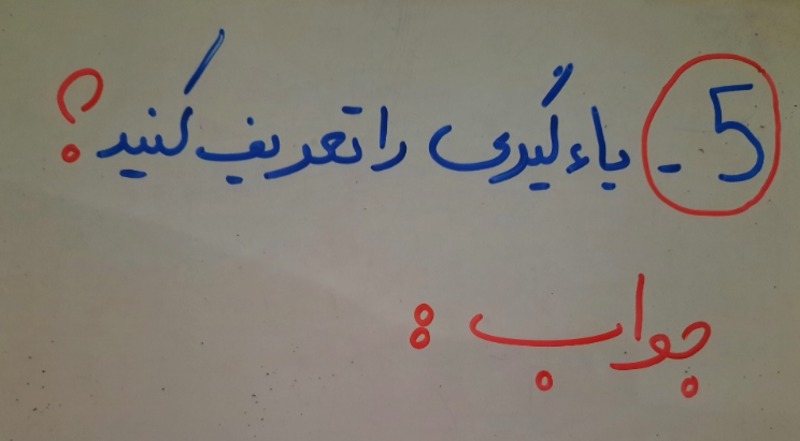 5- یاءگیری را تعریف کنید؟
جواب: